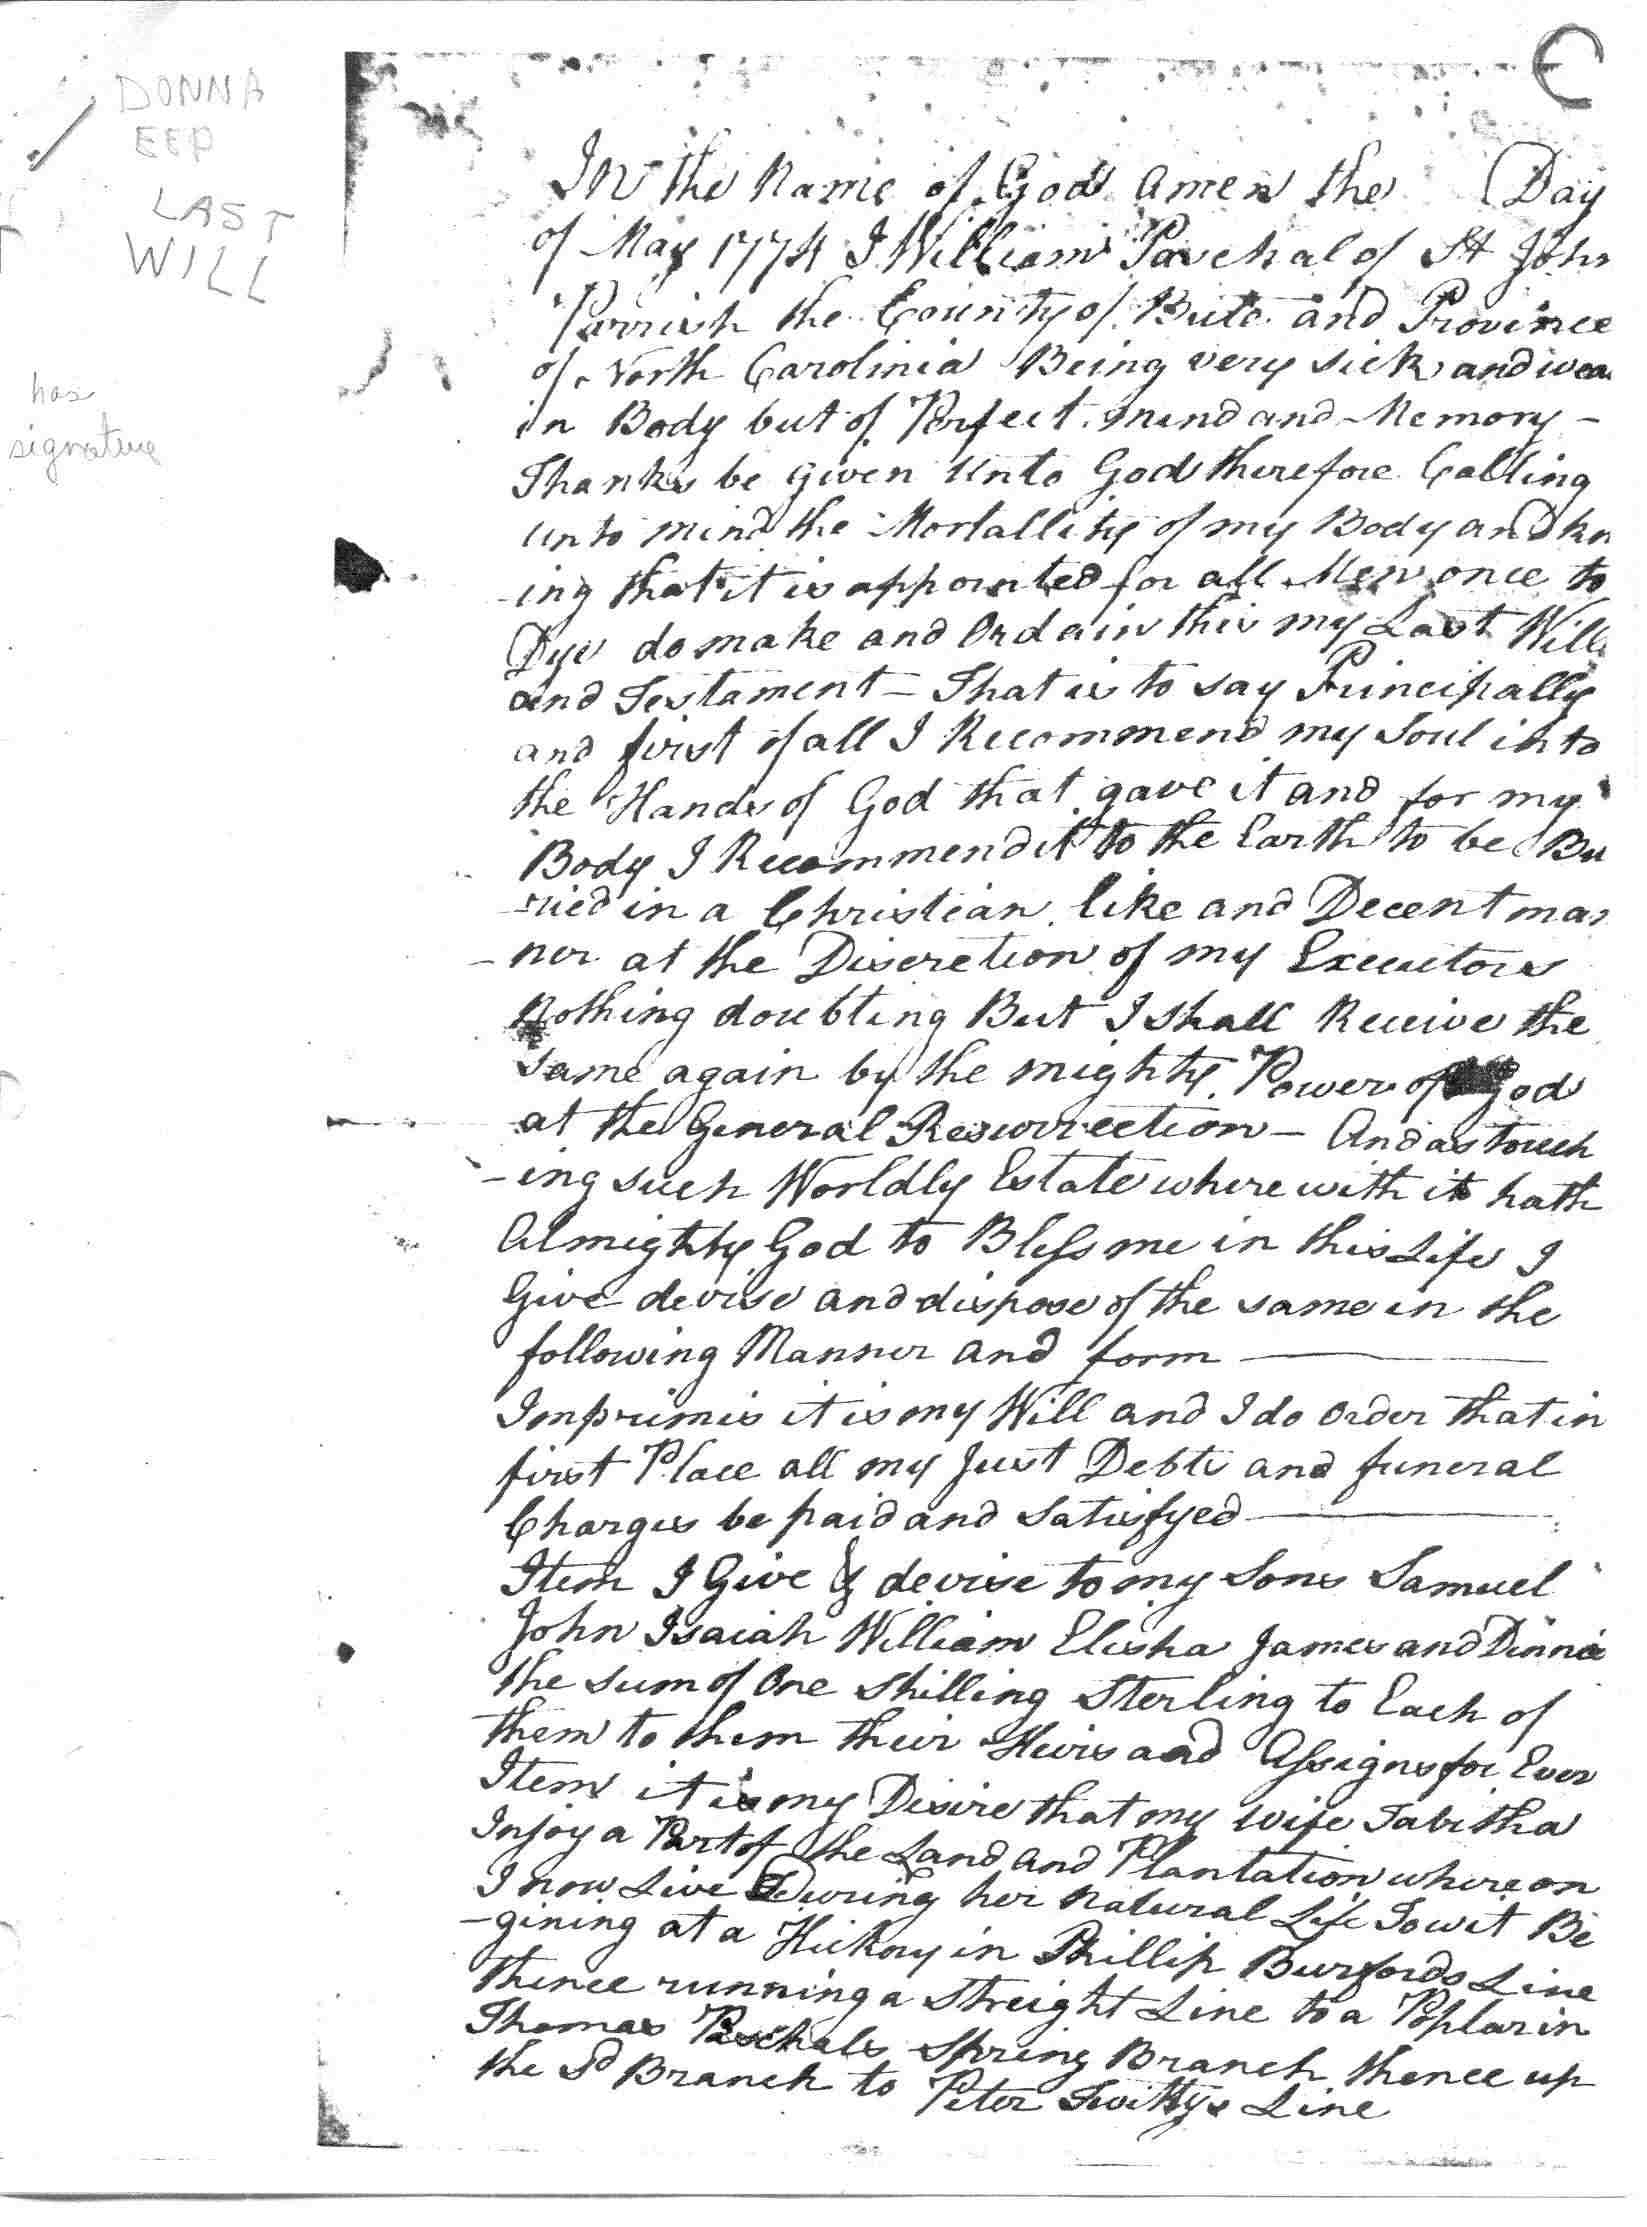 DONNA
EEP
LAST
WILL
has
signature
In the Name of God amen the Day
of May 1774 I William Paschal of St John
Parrish the County of Bute and Province
of North Carolinia Being very sick and wea
in Body but of Perfect mind and Memory -
Thanks be given Unto God therefore Calling
unto mind the Mortallity of my Body and kn
-ing that it is appointed for all Men once to
Dye do make and Ordain this my Last Will
and Testament - That is to say Principally
and first of all I Recommend my Soul into
the Hands of God that gave it and for my
Body I Recommend it to the Earth to be Bu
-ried in a Christian like and Decent man
-ner at the Discretion of my Executors
Nothing doubting But I shall Receive the
same again by the mighty Power of God
at the General Resurrection - And as touch
-ing such Worldly Estate where with it hath
Almighty God to Bless me in this Life I
Give devise and dispose of the same in the
following Manner and form
Imprimis it is my Will and I do Order that in
first Place all my Just Debts and funeral
Charges be paid and Satisfyed
Item I Give & devise to my Sons Samuel
John Isaiah William Elisha James and Dinnis
the sum of One Shilling Sterling to Each of
them to them their Heirs and Assigns for Ever
Item it is my Desire that my wife Tabitha
Injoy a Part of the Land and Plantation where on
I now Live During her natural Life Towit Be
-gining at a Hickory in Phillip Burfords Line
thence running a Streight Line to a Poplar in
Thomas Paschals Spring Branch thence up
the Sd Branch to Peter Twittys Line